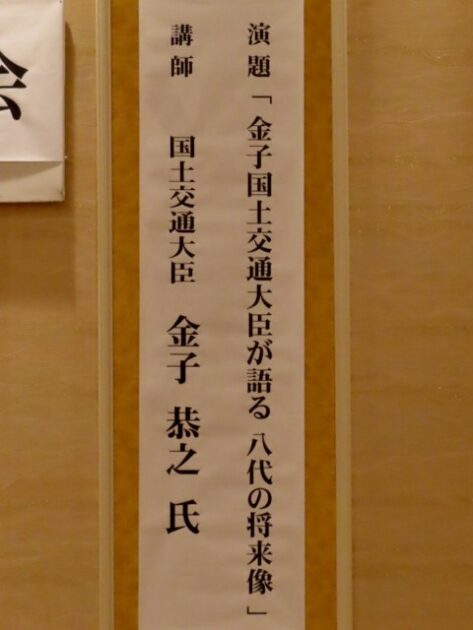 演題「金子国土交通大臣が語る 八代の将来像」
講師 国土交通大臣 金子 恭之 氏
会